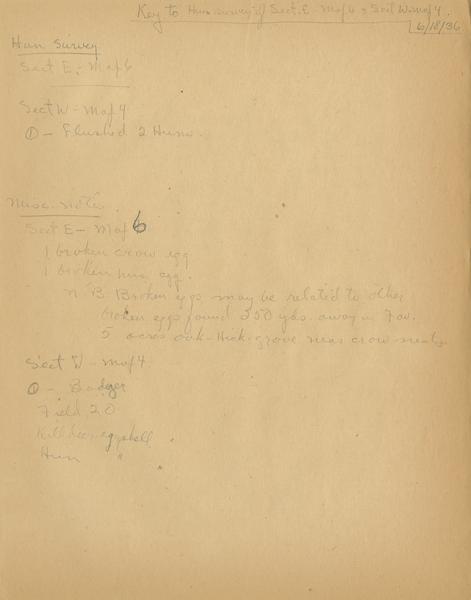 Key to Hun survey of Sect. E - Map 6 & Sect W - map 4.
6/18/36
Hun Survey
Sect E - Map 6
Sect W - Map 4
① - Flushed 2 Huns.
Misc. Notes
Sect E - Map 6
1 broken crow egg
1 broken hun egg.
N.B. Broken eggs may be related to other
broken eggs found 350 yds. away in
5 acres oak-Hick. grove near crow nests
Sect W - Map 4
① - Badger
Field 20
Killdeer eggshell
Hun "